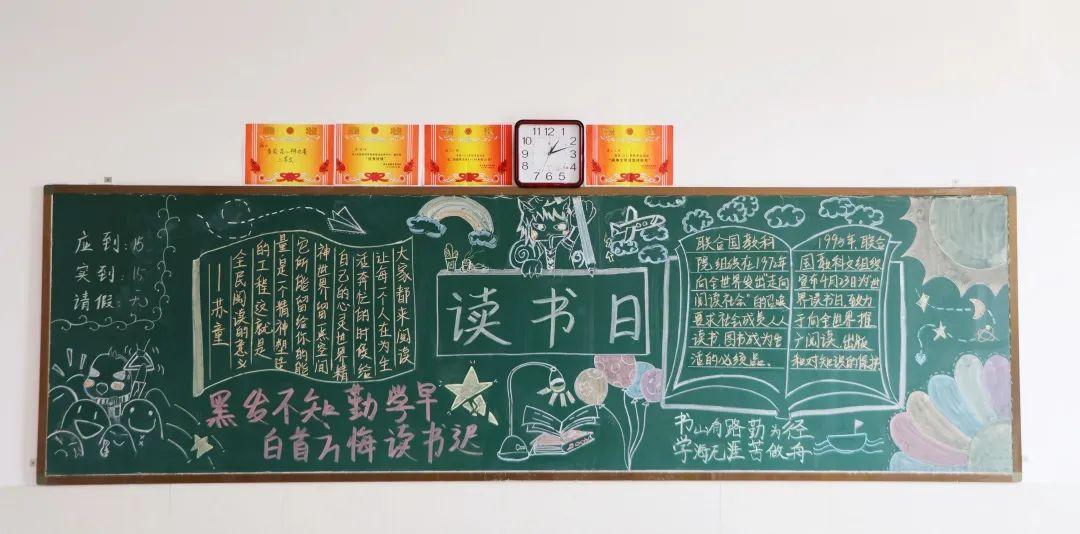 应到:15
实到:15
请假:无
大家都来阅读
让每一个人在为生
活奔忙的时候给
自己的心灵世界精
神世界留一点空间
它所能留给你的能
量是一个精神塑造
的工程 这就是
全民阅读的意义
——苏童
黑发不知勤学早
白首方悔读书迟
读书日
联合国教科
院组织在1972年
向全世界发出"走向
阅读社会"的召唤
要求社会成员人人
读书 图书成为生
活的必须品。
1995年联合
国教科文组织
宣布4月23日为"世
界读书日,致力
于向全世界推
广阅读、出版
和对知识的保护
书山有路勤为径
学海无涯苦做舟